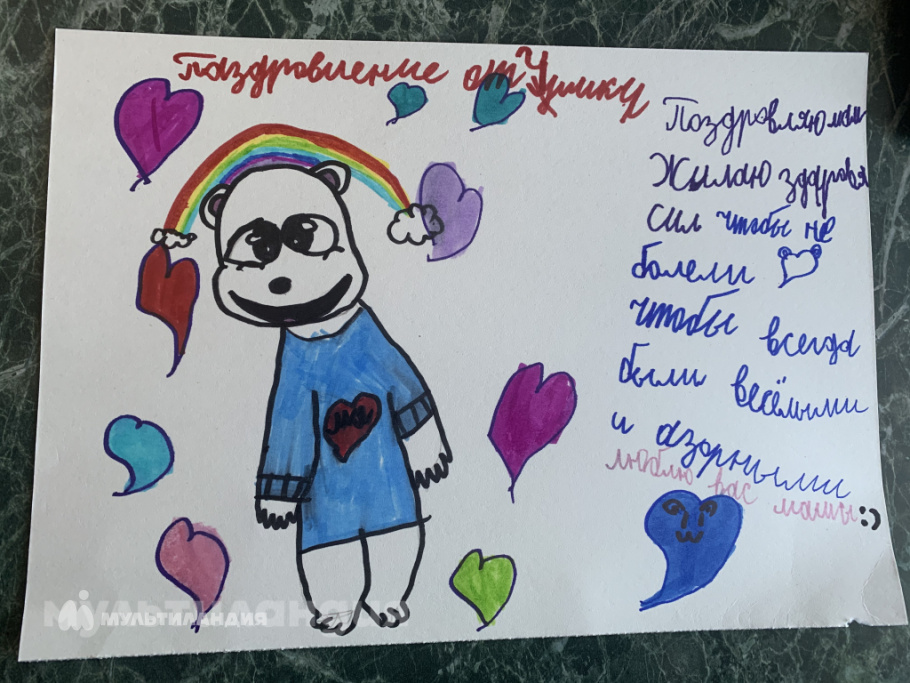 Паздровление от Чумику
Поздровляю мам
Жилаю здаровя
сил чтобы не
болели
чтобы всегда
были весёлыми
и азорными
люблю вас мамы:)
ма
МУЛЬТИЛАНДИЯ